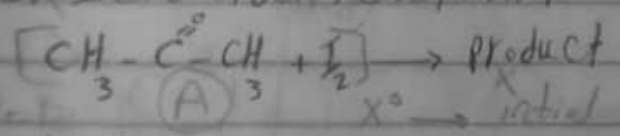 [CH₃-C=O-CH₃ + I₂] → product
A X° → X intial